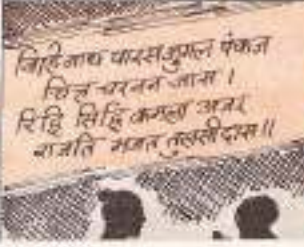 जिहिं नाथ पारस जुगल पंकज
चित्त चरनन जास ।
रिद्धि सिद्धि कमला अजर
राजति भजत तुलसीदास ॥